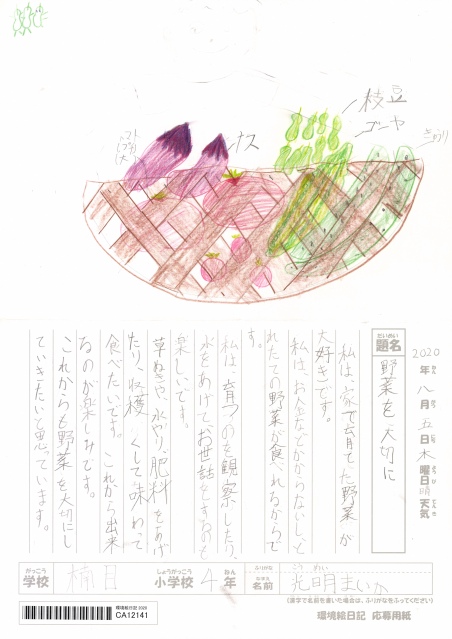 枝豆
ゴーヤ
きゅうり
ナス
トマト
2020年八月五日木曜日晴天気
だいめい
題名
野菜を大切に
私は、家で育てた野菜が
大好きです。
私は、お金などかからないしと
れたての野菜が食べれるからで
す。
私は、育つのを観察したり、
水をあげて、お世話をするのも
楽しいです。
草ぬきや水やり、肥料をあげ
たり、収穫くして味わって
食べたいです。これから出来
るのが楽しみです。
これからも野菜を大切にし
ていきたいと思っています。
がっこう
学校
楠目
しょうがっこう
小学校
4
ねん
年
ふりがな
なまえ
名前
光明まいか
(漢字で名前を書いた場合は、ふりがなをふってください)
環境絵日記2020
CA12141
環境絵日記 応募用紙